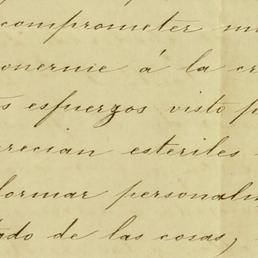 comprometer m
onerme á la cr
s esfuerzos visto p
recian estériles
formar personalm
tado de las cosas,